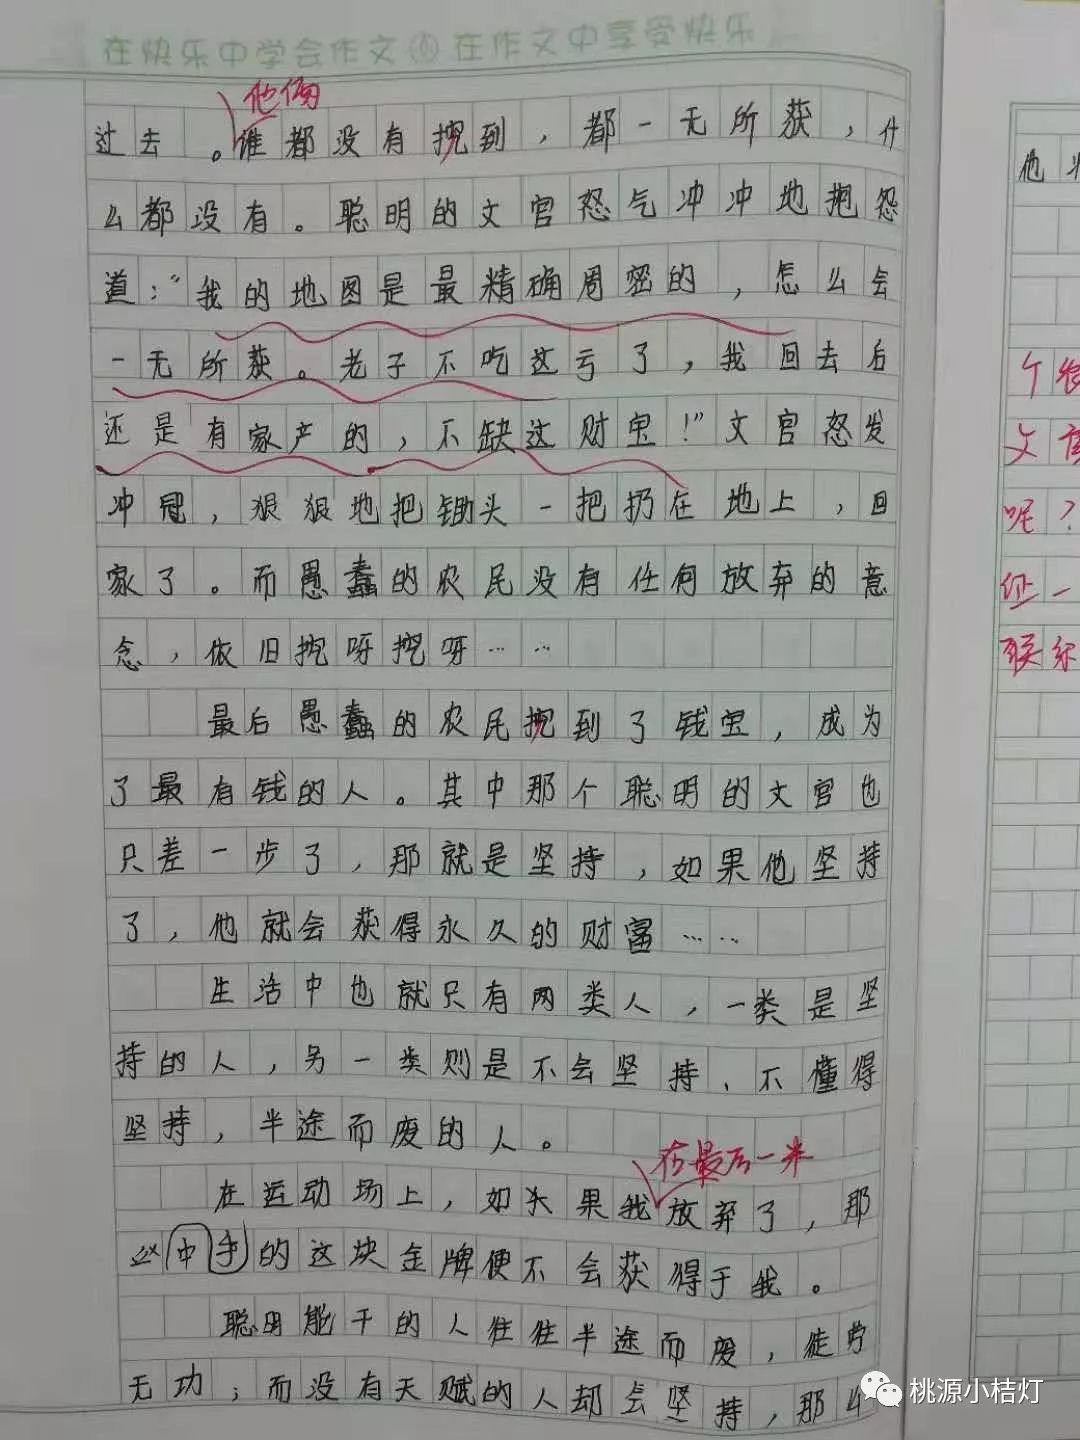 在快乐中学会作文 在作文中享受快乐
他俩
过去。谁都没有挖到，都一无所获，什
么都没有。聪明的文官怒气冲冲地抱怨
道：“我的地图是最精确周密的，怎么会
一无所获。老子不吃这亏了，我回去后
还是有家产的，不缺这财宝！”文官怒发
冲冠，狠狠地把锄头一把扔在地上，回
家了。而愚蠢的农民没有任何放弃的意
念，依旧挖呀挖呀……
最后愚蠢的农民挖到了钱宝，成为
了最有钱的人。其中那个聪明的文官也
只差一步了，那就是坚持，如果他坚持
了，他就会获得永久的财富……
生活中也就只有两类人，一类是坚
持的人，另一类则是不会坚持、不懂得
坚持，半途而废的人。
在最后一米
在运动场上，如果我放弃了，那
么中手的这块金牌便不会获得于我。
聪明能干的人往往半途而废，徒劳
无功；而没有天赋的人却会坚持，那么
他
个很
文
呢？
一
桃源小桔灯